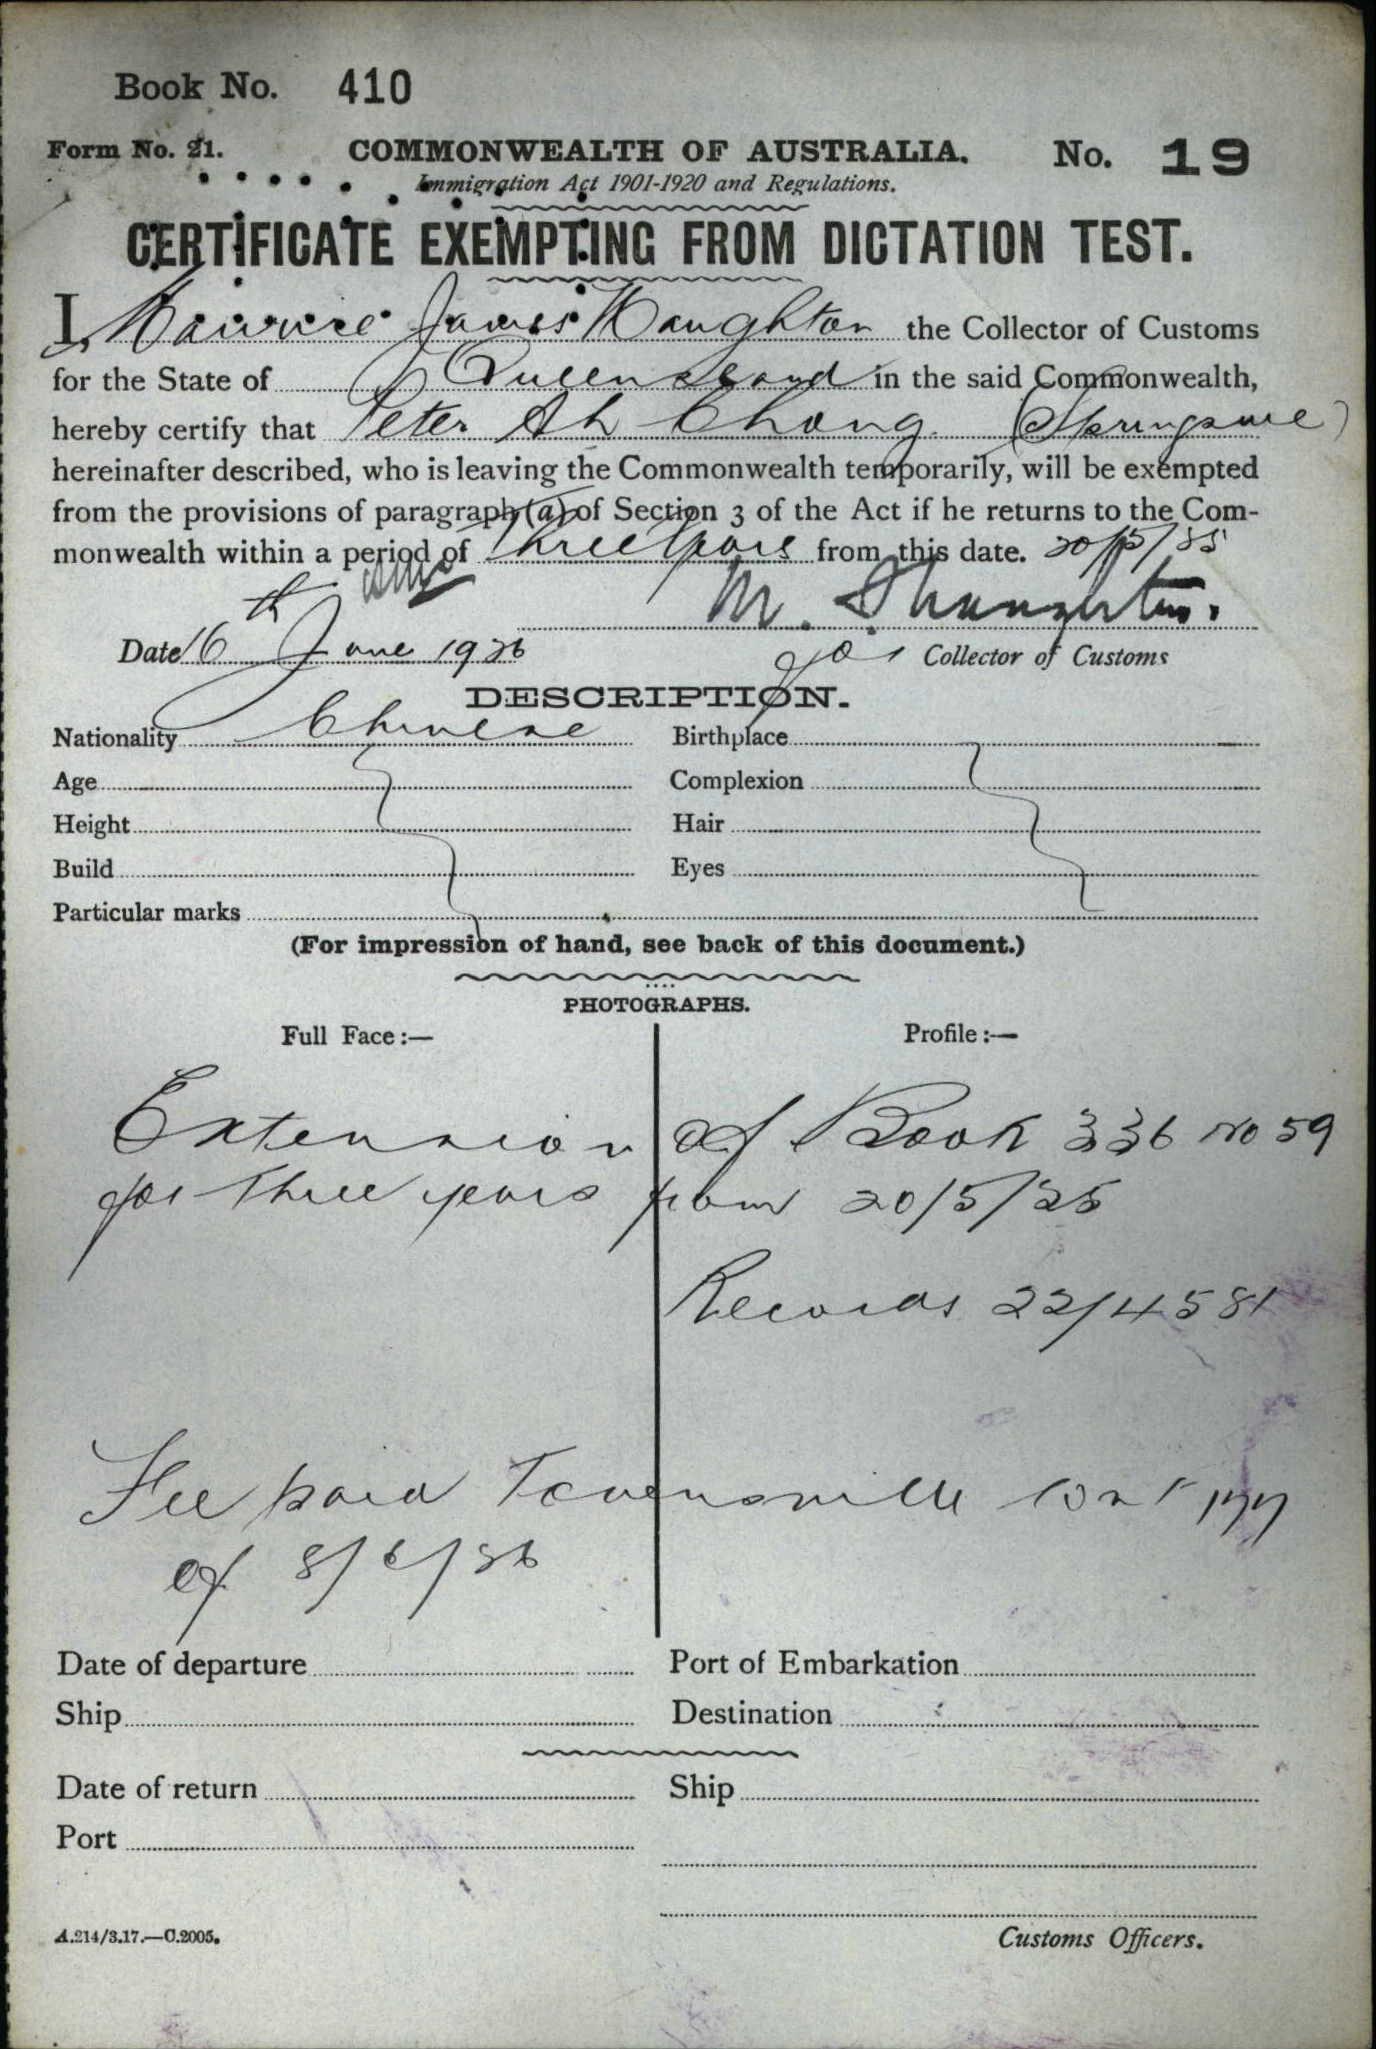 Book No. 410
Form No. 21. COMMONWEALTH OF AUSTRALIA. No. 19
Immigration Act 1901-1920 and Regulations.
CERTIFICATE EXEMPTING FROM DICTATION TEST.
I, Maurice James Haughton the Collector of Customs
for the State of Queensland in the said Commonwealth,
hereby certify that Peter Ah Chong (Springsure)
hereinafter described, who is leaving the Commonwealth temporarily, will be exempted
from the provisions of paragraph (a) of Section 3 of the Act if he returns to the Com-
monwealth within a period of three years from this date. 20/5/25
M. J. Haughton.
Date 16th June 1926 for Collector of Customs
DESCRIPTION.
Nationality Chinese Birthplace
Age Complexion
Height Hair
Build Eyes
Particular marks
(For impression of hand, see back of this document.)
PHOTOGRAPHS.
Full Face :— Profile :—
Extension of Book 336 No 59
for three years from 20/5/25
Records 22/4581
Fee paid Townsville
of 8/6/26
Date of departure Port of Embarkation
Ship Destination
Date of return Ship
Port
A.214/3.17.—C.2005. Customs Officers.